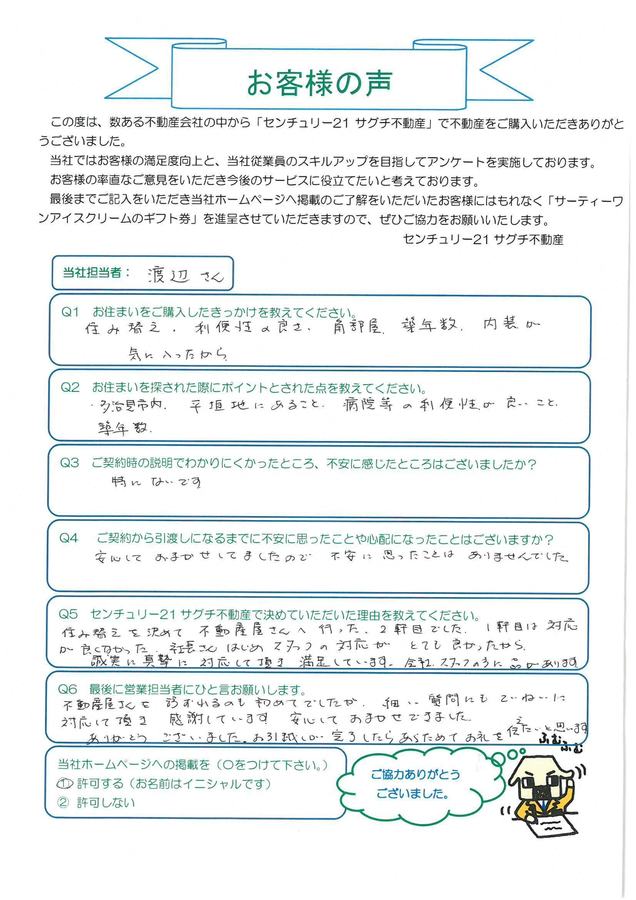 お客様の声
この度は、数ある不動産会社の中から「センチュリー21 サグチ不動産」で不動産をご購入いただきありがと
うございました。
当社ではお客様の満足度向上と、当社従業員のスキルアップを目指してアンケートを実施しております。
お客様の率直なご意見をいただき今後のサービスに役立てたいと考えております。
最後までご記入をいただき当社ホームページへ掲載のご了解をいただいたお客様にはもれなく「サーティーワ
ンアイスクリームのギフト券」を進呈させていただきますので、ぜひご協力をお願いいたします。
センチュリー21 サグチ不動産
当社担当者： 渡辺さん
Q1 お住まいをご購入したきっかけを教えてください。
住み替え、利便性の良さ、角部屋、築年数、内装が
気に入ったから
Q2 お住まいを探された際にポイントとされた点を教えてください。
・多治見市内、平坦地にあること、病院等の利便性が良いこと、
築年数、
Q3 ご契約時の説明でわかりにくかったところ、不安に感じたところはございましたか？
特にないです
Q4 ご契約から引渡しになるまでに不安に思ったことや心配になったことはございますか？
安心しておまかせしてましたので 不安に思ったことはありませんでした
Q5 センチュリー21 サグチ不動産で決めていただいた理由を教えてください。
住み替えを決めて不動産屋さんへ行った、2軒目でした。1軒目は対応
が良くなかった、社長さんはじめスタッフの対応がとても良かったから、
誠実に真摯に対応して頂き満足しています。会社、スタッフの方に品があります
Q6 最後に営業担当者にひと言お願いします。
不動産屋さんを訪ずれるのも初めてでしたが、細い質問にもていねいに
対応して頂き 感謝しています 安心しておまかせできました
ありがとうございました。お引越しが完了したらあらためてお礼を伝えたいと思います
当社ホームページへの掲載を（○をつけて下さい。）
① 許可する（お名前はイニシャルです）
② 許可しない
ご協力ありがとう
ございました。
ふむ
ふむ